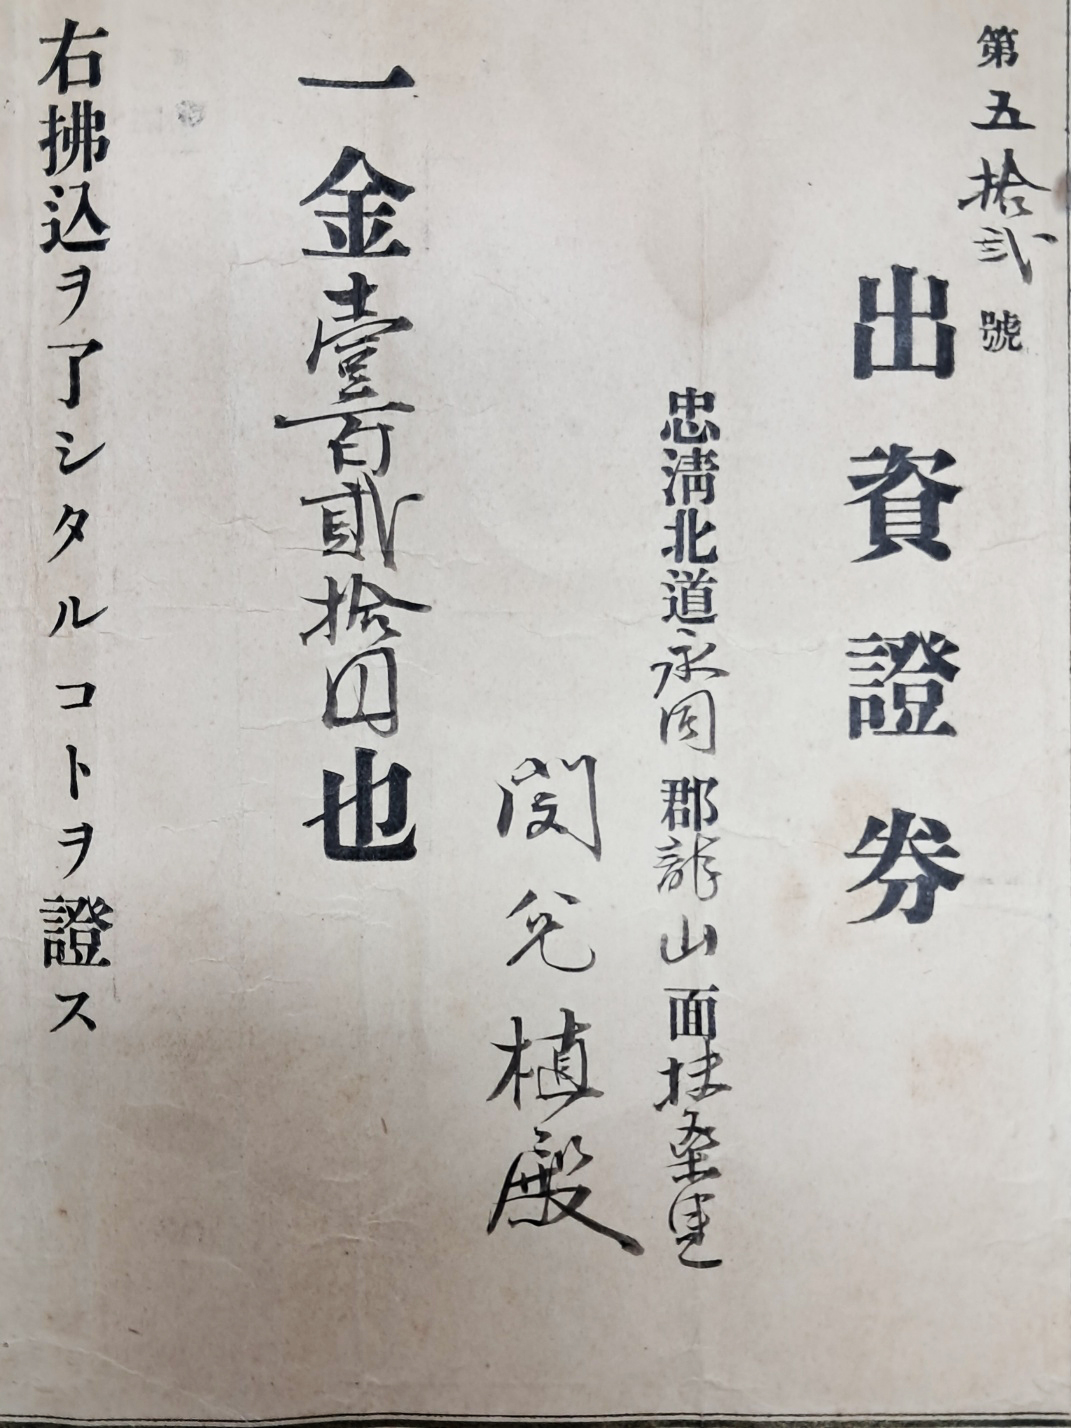 第五拾弐號
出資證券
忠淸北道永同郡龍山面扶桑里
閔兌植殿
一金壹百貳拾円也
右拂込ヲ了シタルコトヲ證ス